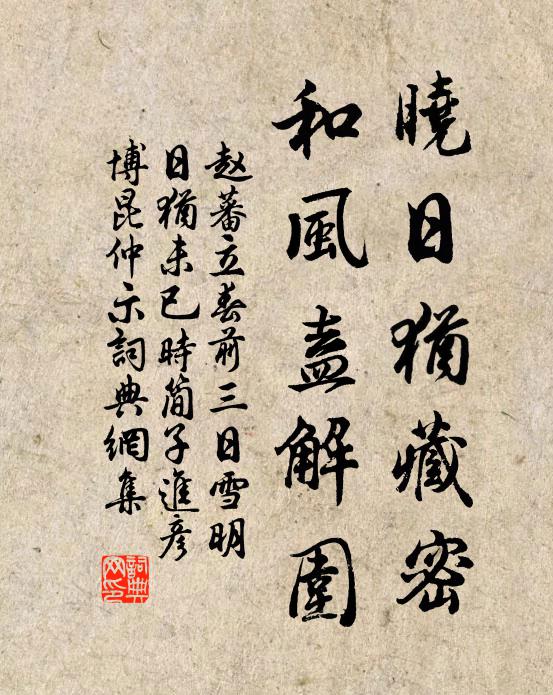 曉日猶藏密
和風盍解圍
赵蕃立春前三日雪明
日猶未已時簡子進彥
博昆仲示詞典網集
詞典网印